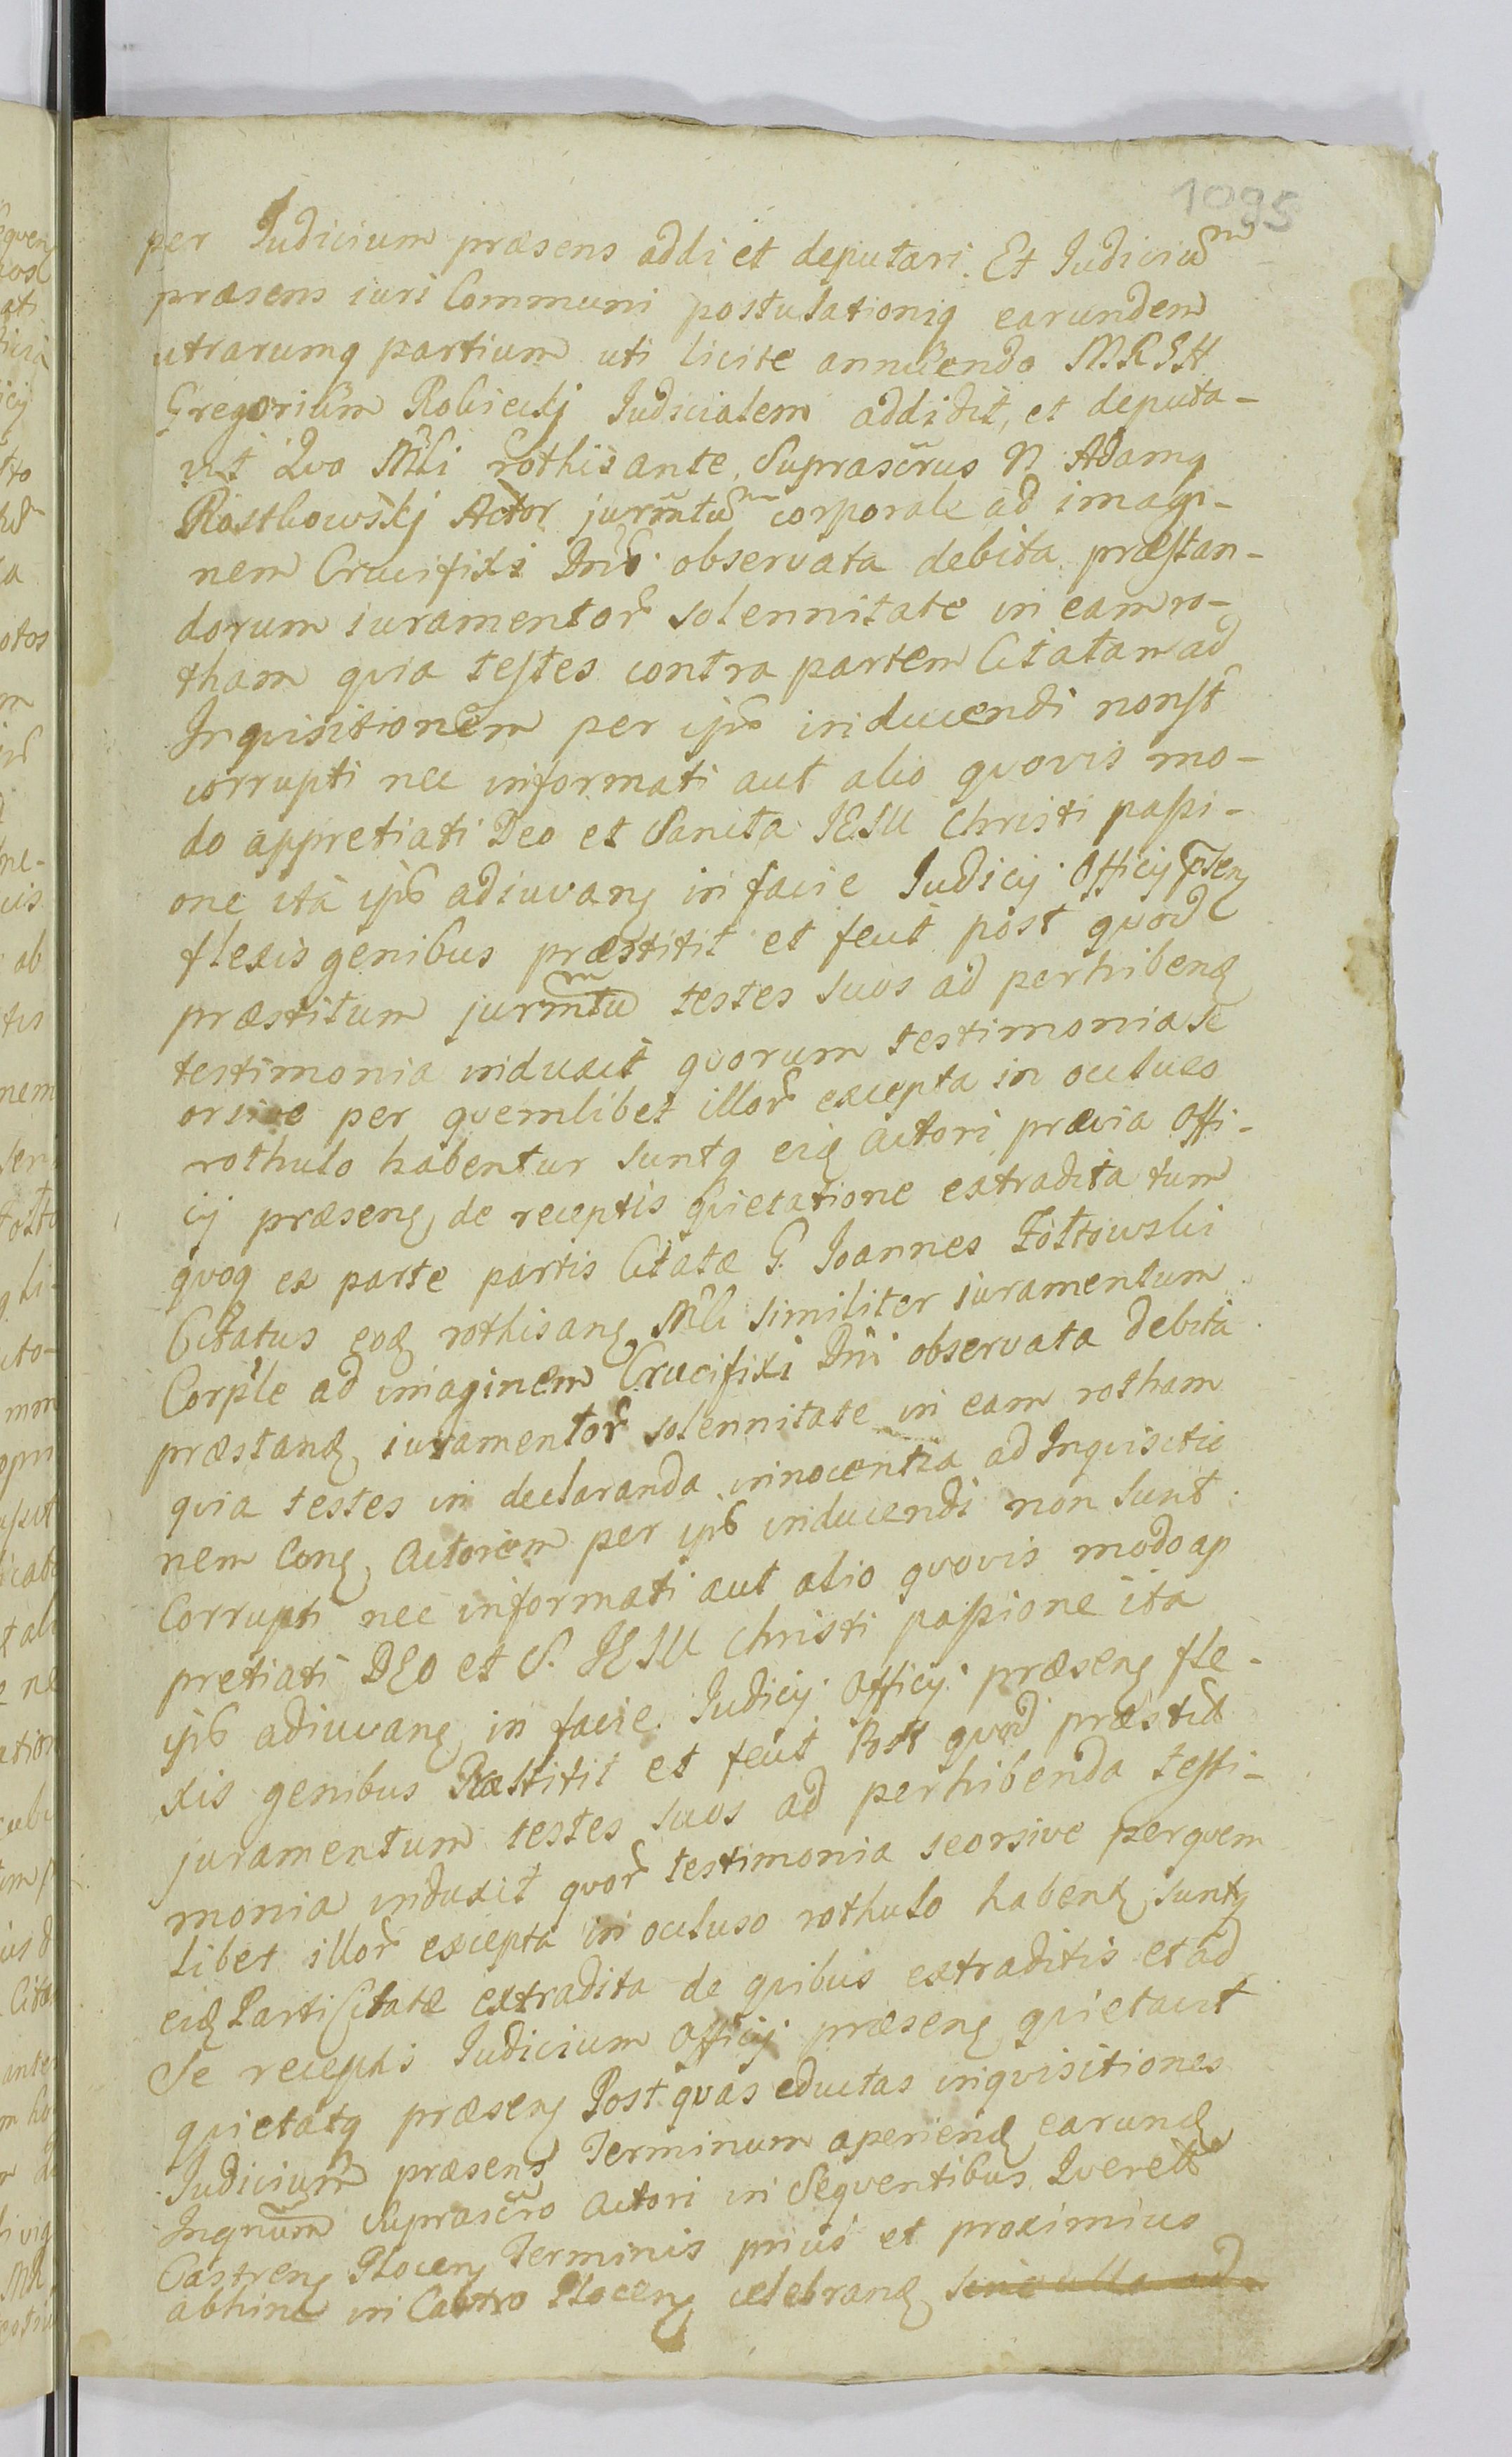 1095
per Judicium præsens addi et deputari. Et Judiciũm
præsens iuri Communi postulationiq earundem
utrarumq partium uti licite annuendo M. R. S. H
Gregorium Robieckj Judicialem addidit, et deputa-
vit Quo Mli rothisante Suprascrus N Adamq
Rostkowskj Actor jurmtum corporale ad imagi-
nem Crucifixi Dni observata debita præstan-
dorum iuramentor solennitate in eam ro-
tham qvia testes contra partem Citatam ad
Inqvisitionem per ips inducendi nonst
corrupti nec informati aut alio qvovis mo-
do appretiati Deo et Sancta JESU Christi passi-
one ita ips adiuvanɋ in facie Judicij Officij psenɋ
flexis genibus præstitit et fecit post qvod
præstitum jurmtum testes suos ad perhibenɋ
testimonia induxit qvorum testimonia se
orsive per qvemlibet illor excepta in ocluso
rothulo habentur suntq eiɋ Actori prævia Offi-
cij præsenɋ de receptis qvietatione extradita tum
qvoq ex parte partis Citatæ G. Joannes Zołtowski
Citatus eoɋ rothisanɋ Mli similiter iuramentum
Corple ad imaginem Crucifixi Dni observata debita
præstanɋ iuramentor solennitate in eam rotham
qvia testes in declaranda innocentia ad Inqvisitio
nem Conɋ Actorem per ips inducendi non sunt
Corrupti nec informati aut alio qvovis modo ap
pretiati DEO et S. JESU Christi passione ita
ips adiuvanɋ in facie Judicij Officij præsenɋ fle-
xis genibus Præstitit et fecit Post qvod præstit
juramentum testes suos ad perhibenda testi-
monia induxit qvor testimonia seorsive perqvem
libet illor excepta in ocluso rothulo habentɋ suntq
eiɋ Parti Citatæ extradita de qvibus extraditis et ad
Se receptis Judicium Officij præsenɋ qvietavit
qvietatq præsenɋ Post qvas eductas inqvisitiones
Judicium præsens Terminum aperienɋ earunɋ
Inqnum Suprascro Actori in Seqventibus Qverel
Castrenɋ Plocenɋ Terminis prius et proximius
abhinc in Castro Plocenɋ celebranɋ sine ulla ad